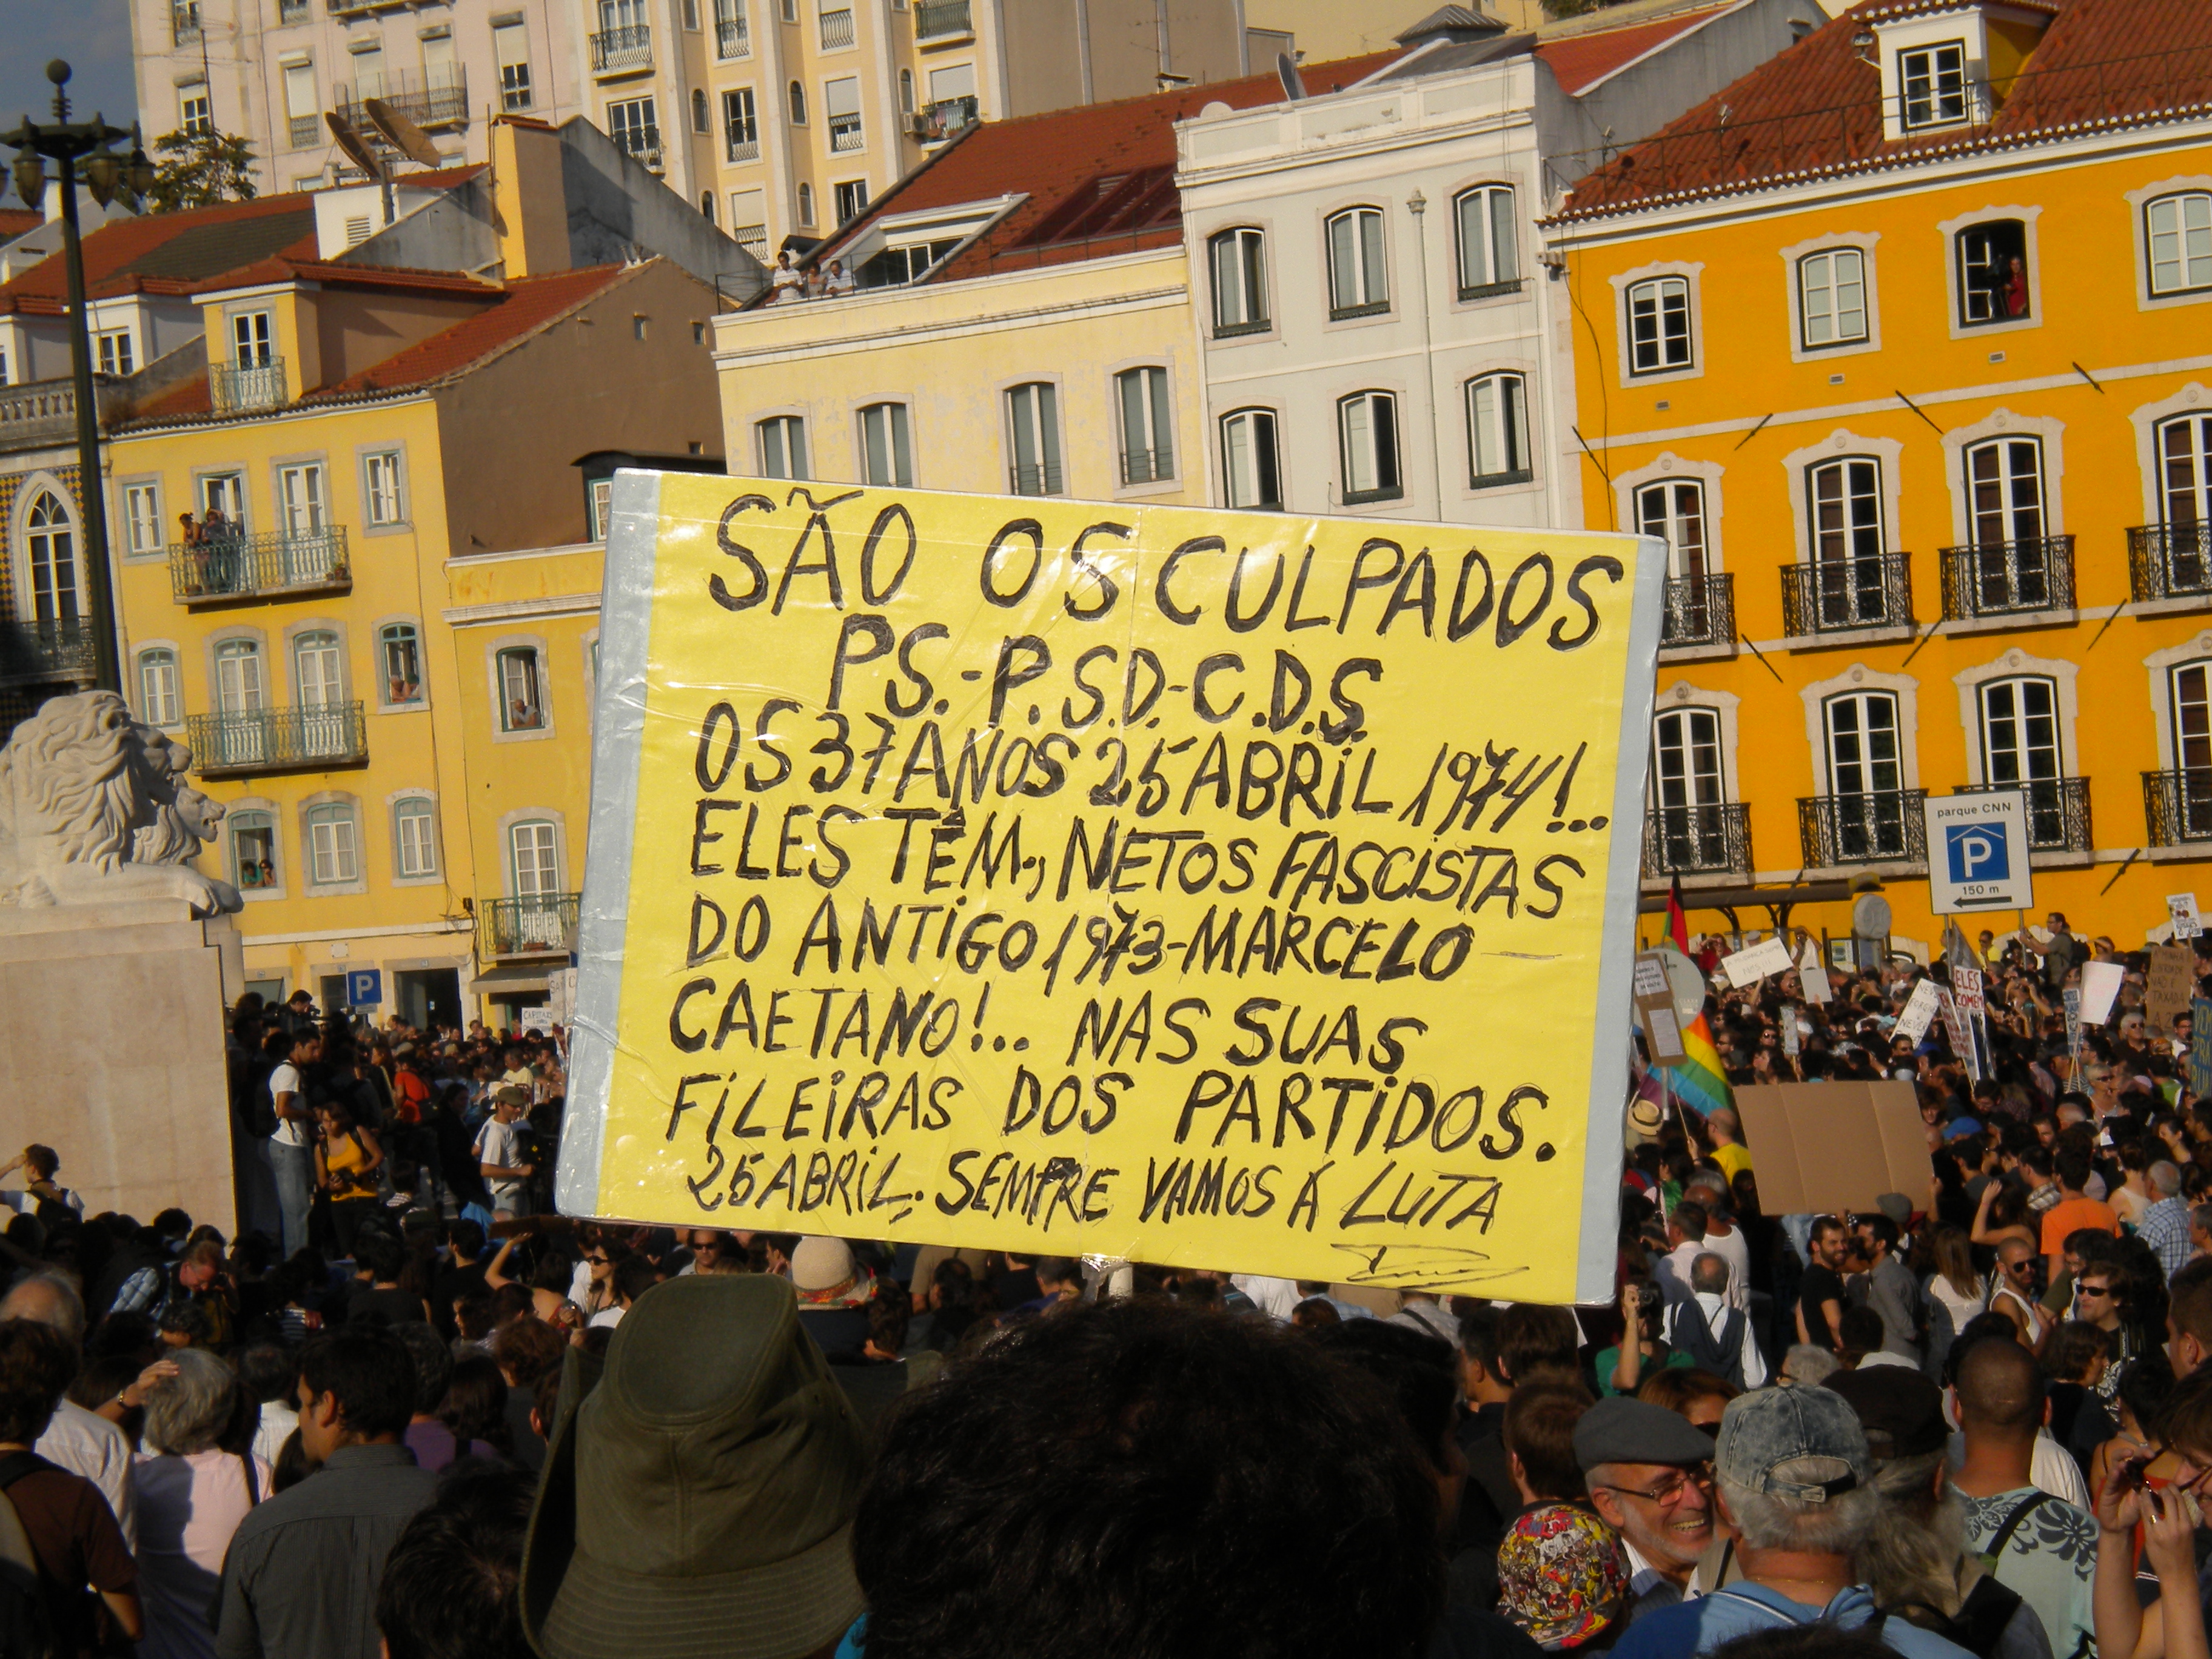 SÃO OS CULPADOS
PS.-P.S.D.-C.D.S.
OS 37 ANOS 25 ABRiL 1974!..
ELES TÊM., NETOS FASCiSTAS
DO ANTiGO 1973-MARCELO
CAETANO!.. NAS SUAS
FiLEiRAS DOS PARTiDOS.
25 ABRiL. SEMPRE VAMOS Á LUTA
parque CNN
P
150 m
P
ELES
COMEM